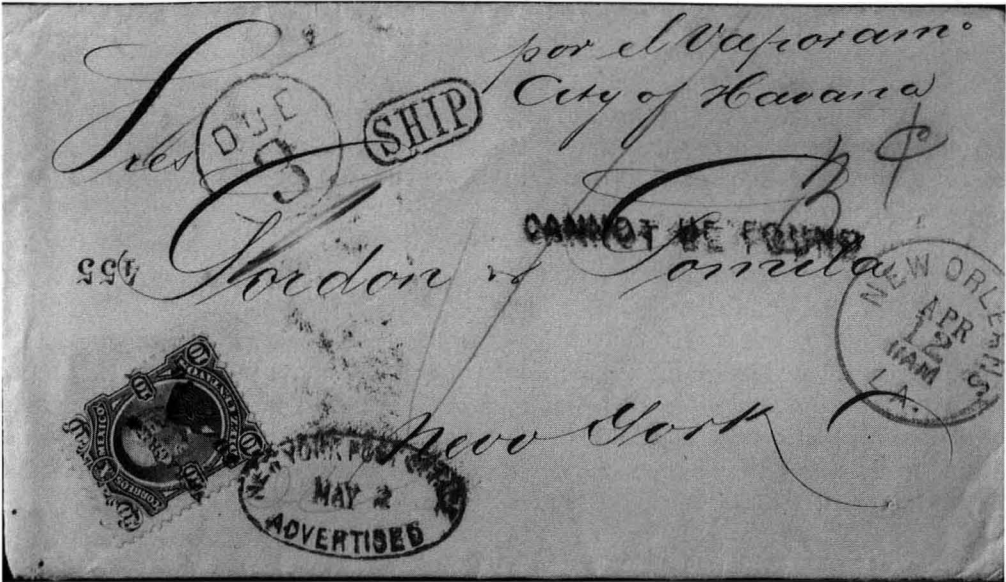 por el Vapor am°
City of Havana
Sres
DUE
3
SHIP
3 ¢
CANNOT BE FOUND
155
Gordon &
New York
NEW ORLEANS
APR
12
11AM
LA.
NEW YORK POST OFFICE
MAY 2
ADVERTISED
MEXICO
10